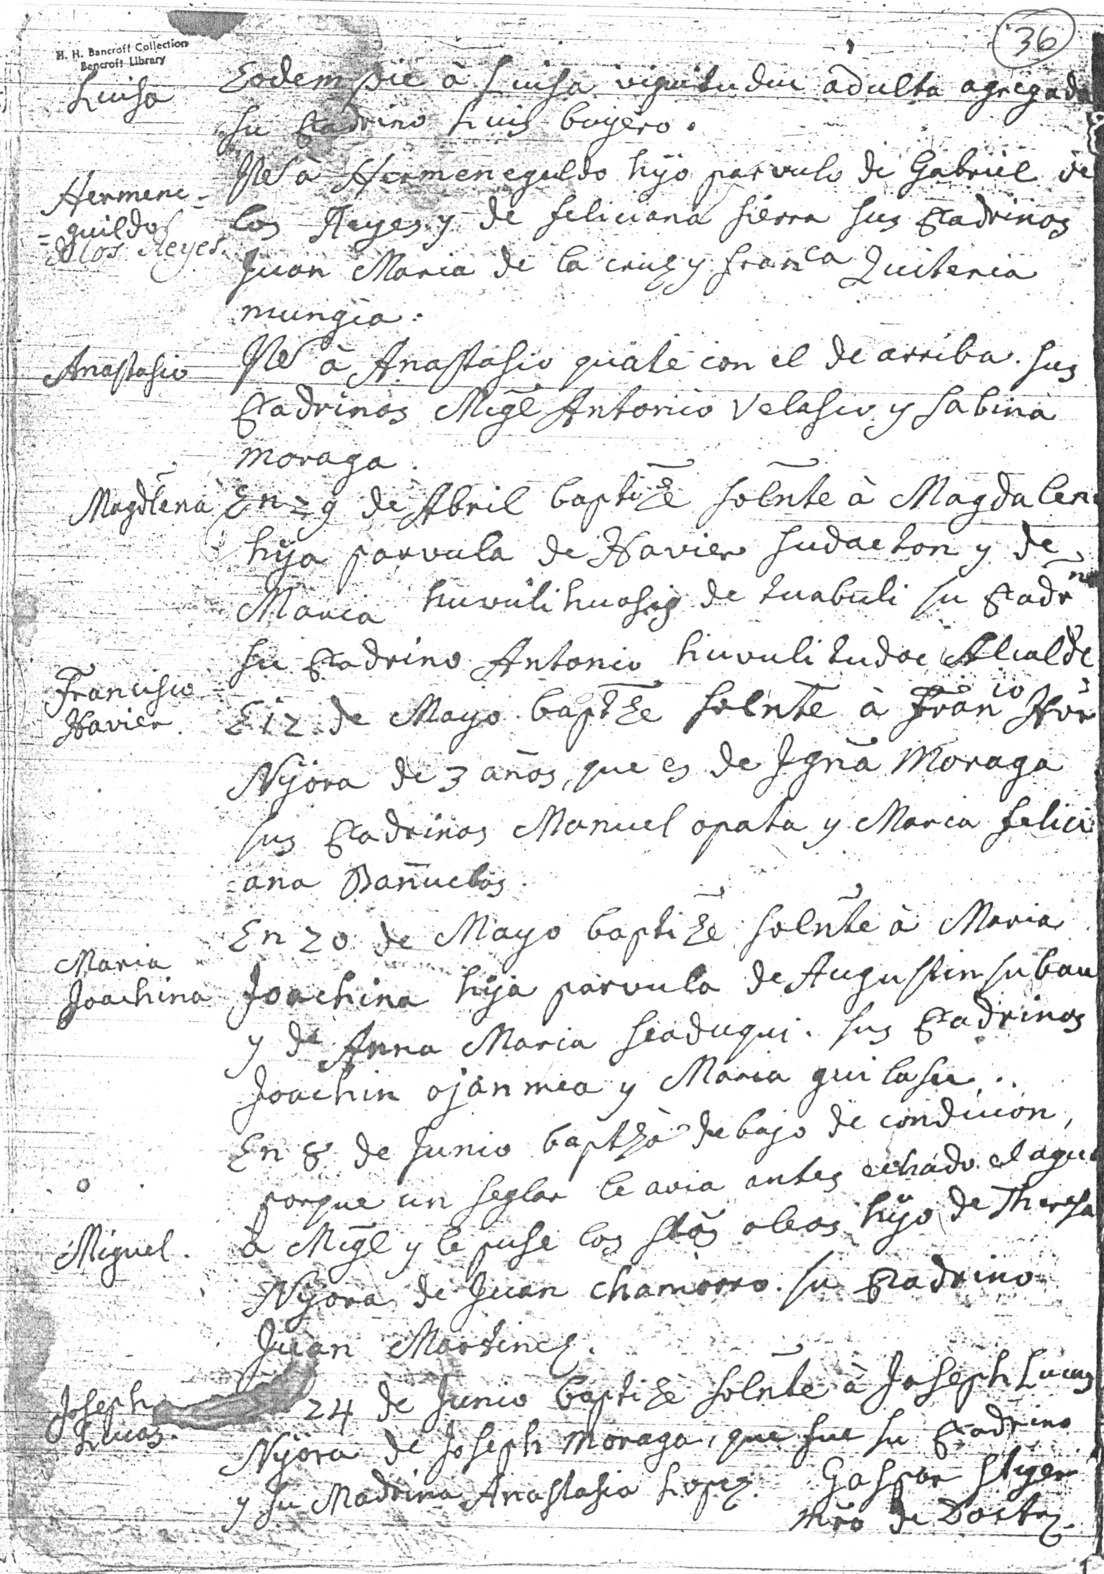 36
H. H. Bancroft Collection
Bancroft Library
Luisa
Eodem die à Luisa viguitudui adulta agregada
su Padrino Luis boyero.
Hermene-
=guildo
de los Reyes
Yt à Hermeneguldo hijo parvulo de Gabriel de
los Reyes y de feliciana sierra sus Padrinos
Juan Maria de la cruz y franca Quiteria
mungia.
Anastasio
Yt à Anastasio quate con el de arriba. sus
Padrinos Migl Antonio Velasco y sabina
moraga.
Magdlena
En 29 de Abril baptizè solnte à Magdalena
hija parvula de Xavier sudacton y de
Maria huvulihuosig de tucbuli su Padrno
su Padrino Antonio huvulitudac Alcalde
Francisco
Xavier.
E 12 de Mayo baptze solnte à Francio Xvr
Nijora de 3 años, que es de Ignã Moraga
sus Padrinos Manuel opata y Maria felici
=ana Bañuelos.
Maria
Joachina
En 20 de Mayo baptizè solnte à Maria
Joachina hija parvula de Augustin subau
y de Anna Maria seaduqui. sus Padrinos
Joachin ojanmea y Maria quilasu..
En 8 de Junio baptzò debajo de condicion,
porque un seglar le avia antes echado el agua
Miguel.
à Migl y le puse los stos oleos hijo de Theresa
Nijora de Juan chamorro. su Padrino
Juan Martinez.
Joseph
Lucas.
24 de Junio baptizè solnte à Joseph Lucas
Nijora de Joseph Moraga, que fue su Padrino
y su Madrina Anastasia Lopez. Gaspar Stiger
Mro de Doctz.